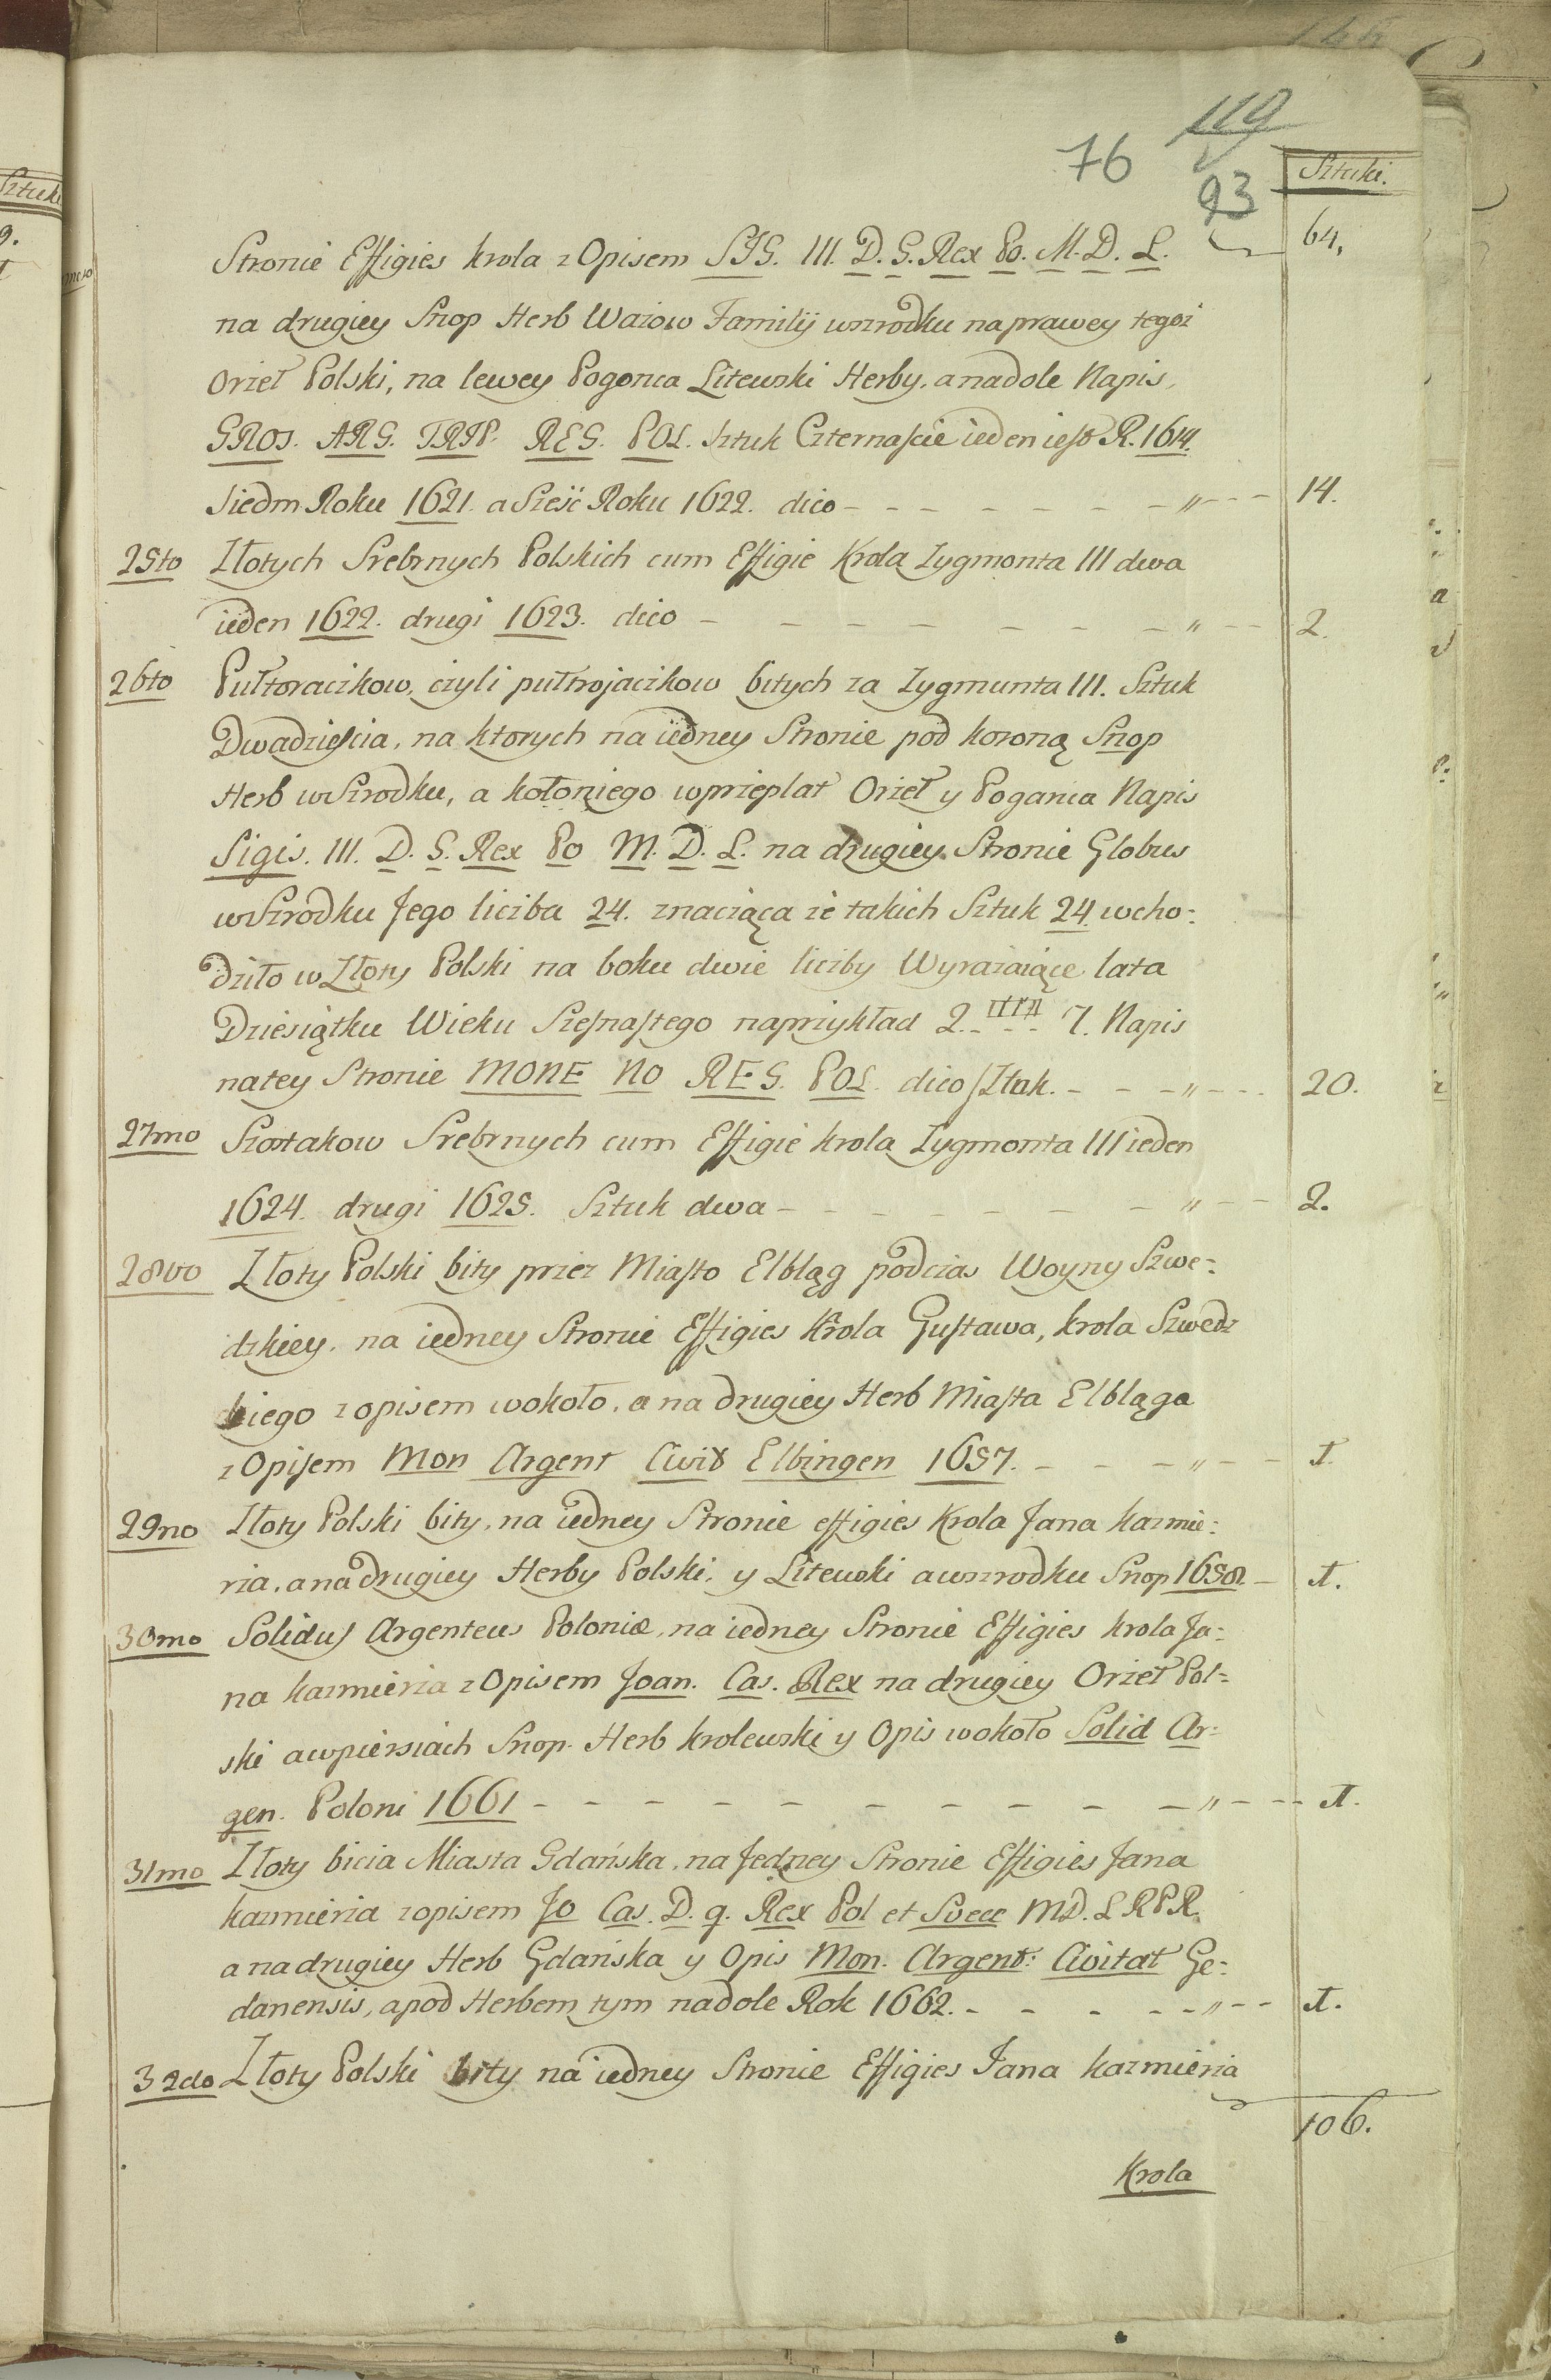 119
76
93
Sztuki.
Stronie Effigies krola z Opisem SIG. III. D. G. Rex Po. M. D. L. 64.
na drugiey Snop Herb Wazow Familij wszrodku na prawey tegoż
Orzeł Polski, na lewey Pogonca Litewski Herby, a nadole Napis,
GROS. ARG. TRIP. REG. POL. Sztuk Czternaście ieden iest R. 1614.
Siedm Roku 1621. a Sześć Roku 1622. dico - - - - - - - „ - - - 14.
25to Złotych Srebrnych Polskich cum Effigie Krola Zygmonta III dwa
ieden 1622. drugi 1623. dico - - - - - - - „ - - 2.
26to Pułtoraczkow, czyli pułtrojaczkow bitych za Zygmunta III. Sztuk
Dwadzieścia, na ktorych na iedney Stronie pod koroną Snop
Herb w Szrodku, a kołoniego wprzeplat Orzeł y Pogania Napis
Sigis. III. D. G. Rex Po M. D. L. na drugiey Stronie Globus
w Szrodku Jego liczba 24. znacząca że takich Sztuk 24. wcho:
dziło w Złoty Polski na boku dwie liczby Wyrażaiące lata
Dziesiątku Wieku Szesnastego naprzykład 2. 7. Napis
natey Stronie MONE NO REG. POL. dico Sztuk. - - - „ - - - 20.
27mo Szostakow Srebrnych cum Effigie krola Zygmonta III ieden
1624. drugi 1625. Sztuk dwa - - - - - - - „ - - 2.
28vo Złoty Polski bity przez Miasto Elbląg podczas Woyny Szwe:
dzkiey, na iedney Stronie Effigies Krola Gustawa, krola Szwedz
kiego z opisem wokoło, a na drugiey Herb Miasta Elbląga
z Opisem Mon Argent Civit Elbingen 1657. - - - „ - - 1.
29no Złoty Polski bity, na iedney Stronie effigies Krola Jana Kazmie:
rza, a na drugiey Herby Polski, y Litewski a wszrodku Snop 1658. - 1.
30mo Solidus Argenteus Poloniæ, na iedney Stronie Effigies krola Ja:
na Kazmierza z Opisem Joan. Cas. Rex na drugiey Orzeł Pol:
ski a wpiersiach Snop Herb krolewski y Opis wokoło Solid Ar:
gen. Poloni 1661 - - - - - - - - - - „ - - - 1.
31mo Złoty bicia Miasta Gdańska, na Jedney Stronie Effigies Jana
Kazmierza z opisem Jo Cas. D. g. Rex Pol et Suec M D. L R P R.
a na drugiey Herb Gdańska y Opis Mon. Argent: Civitat Ge:
danensis, a pod Herbem tym nadole Rok 1662. - - - - - „ - - 1.
32do Złoty Polski bity na iedney Stronie Effigies Jana Kazmierza
106.
Krola